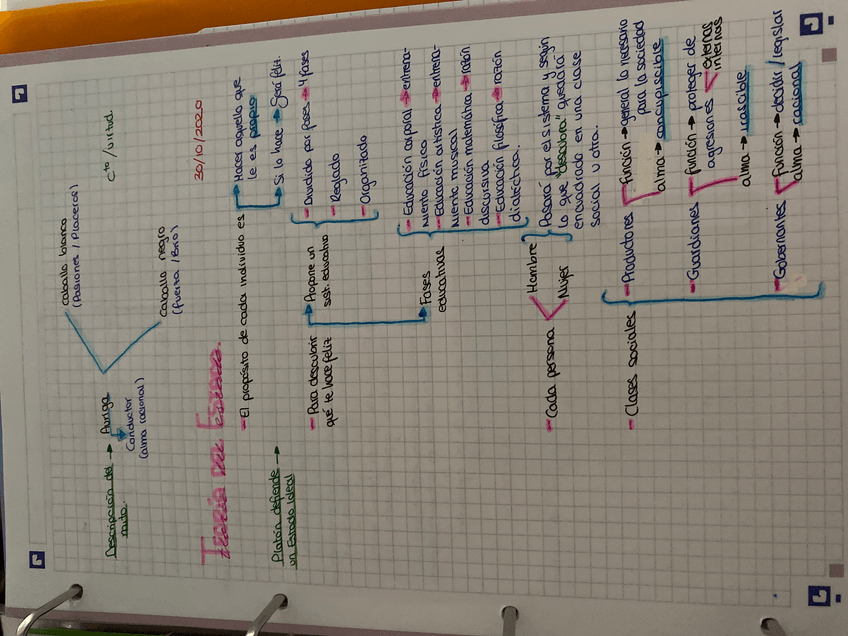 Descripción del → Auriga
mito.
Conductor
(alma racional)
caballo blanco
(Pasiones / Placeres)
caballo negro
(fuerza / Brío)
cto / virtud.
30/10/2020
Teoría del Estado.
Platón defiende →
un Estado Ideal
- El propósito de cada individuo es
→ Hacer aquello que
le es propio
→ Si lo hace → Será feliz.
- Para descubrir
qué te hace feliz
→ Propone un
sist. educativo
- Dividido por fases → 4 fases
- Reglado
- Organizado
→ Fases
educativas
- Educación corporal → entrena-
miento físico
- Educación artística → entrena-
miento musical
- Educación matemática → razón
discursiva
- Educación filosófica → razón
dialéctica.
- Cada persona
Hombre
Mujer
Pasará por el sistema y según
lo que "descubra" quedará
encuadrado en una clase
social u otra.
- Clases sociales
- Productores
función → general lo necesario
para la sociedad
alma → concupiscible
- Guardianes
función → proteger de
agresiones
externas
internas
alma → irascible
- Gobernantes
función → decidir / legislar
alma → racional